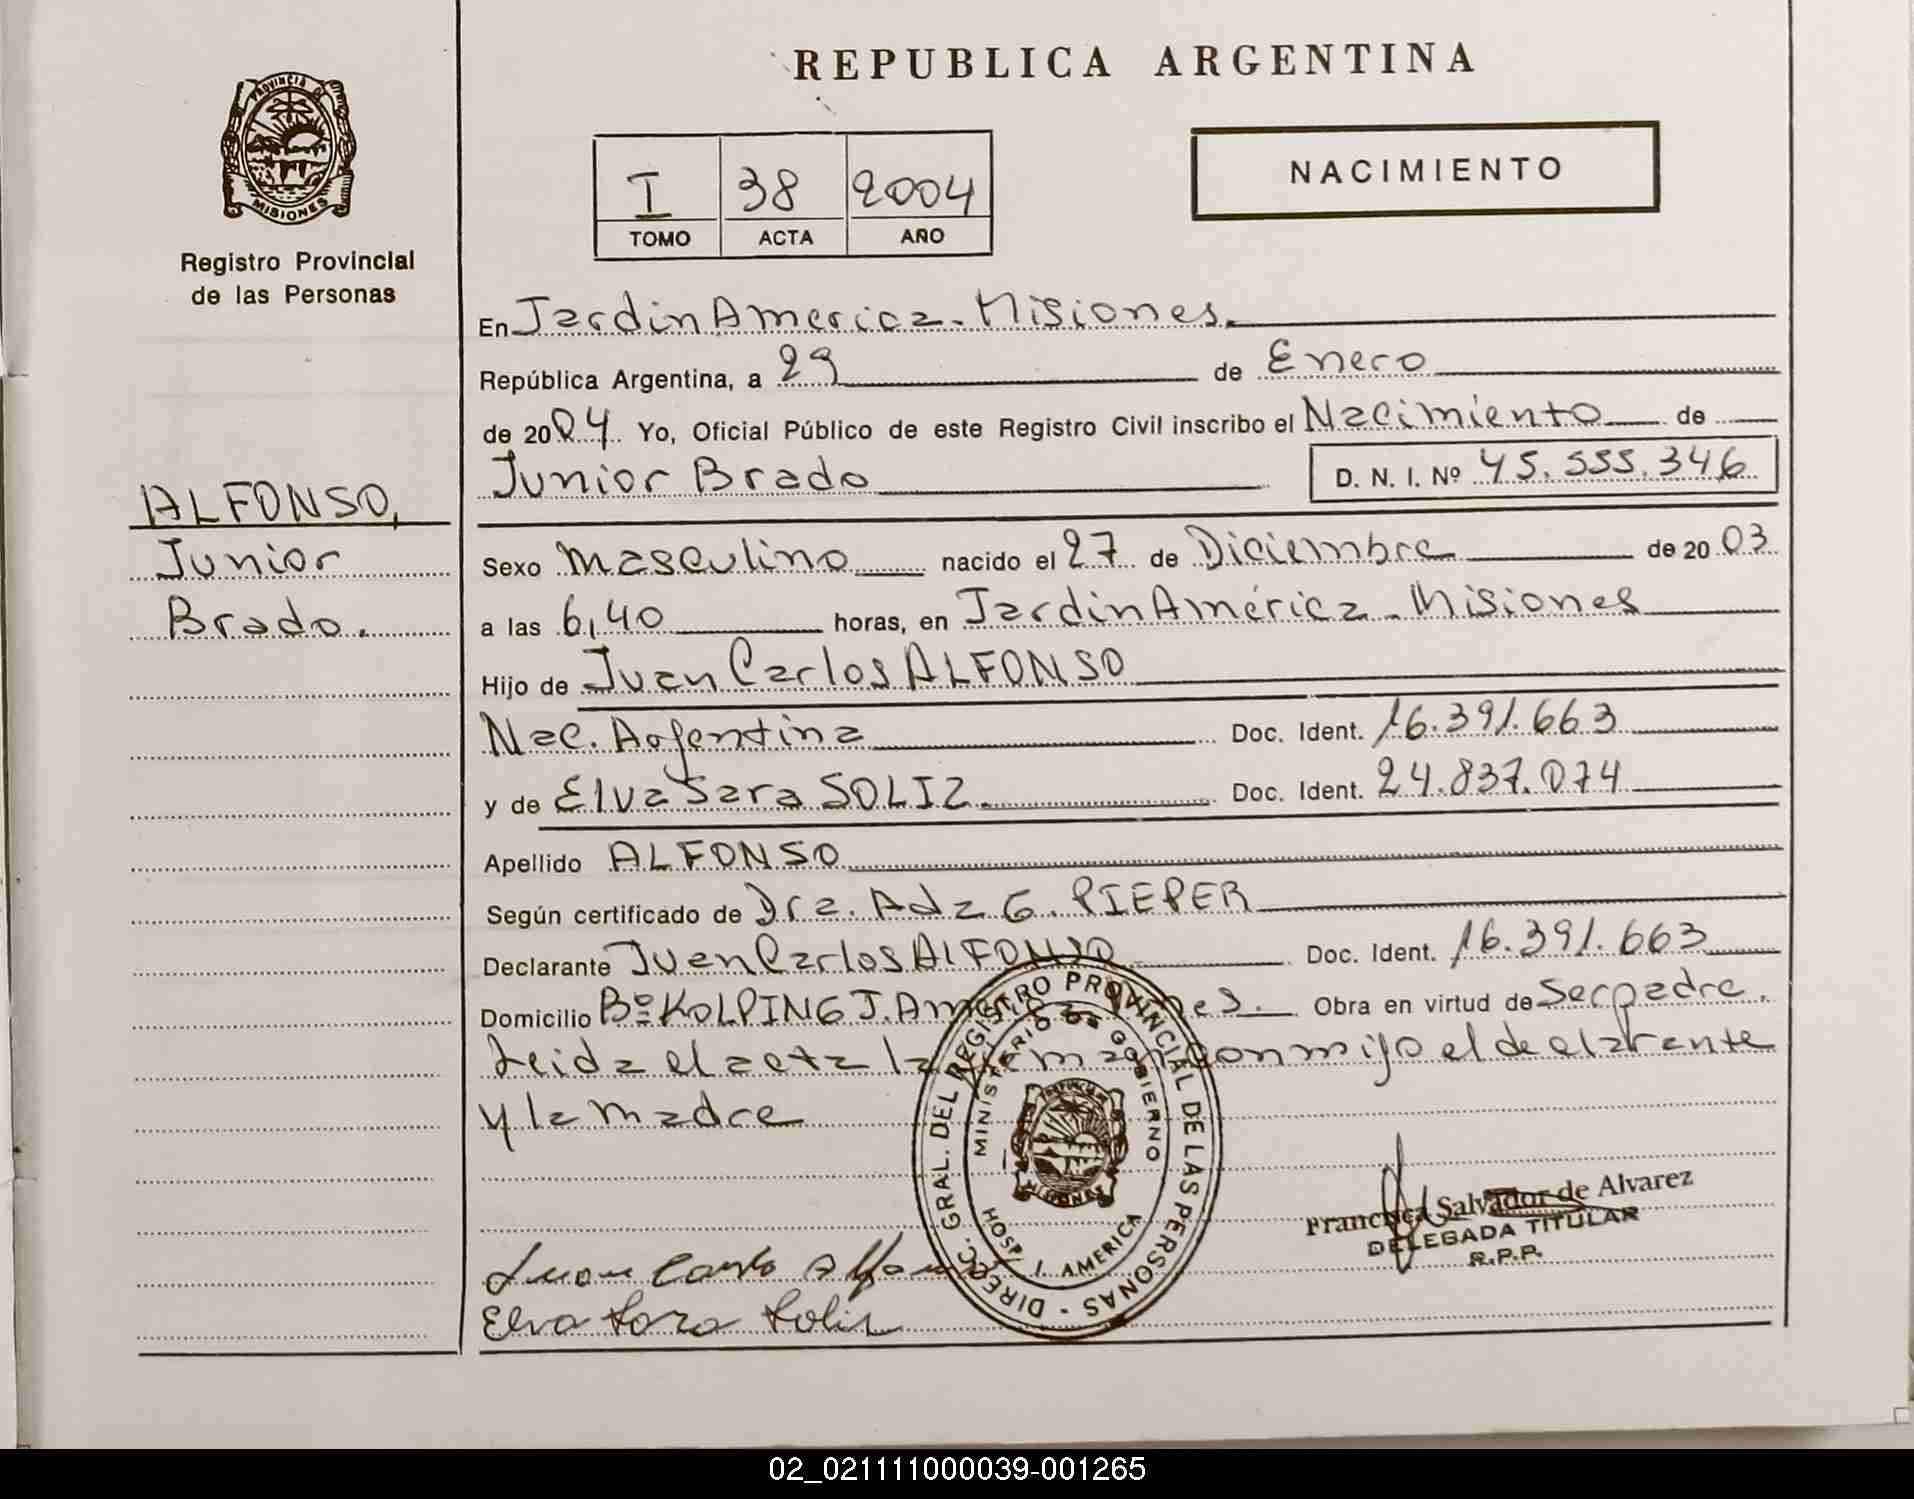 REPUBLICA ARGENTINA
PROVINCIA DE
MISIONES
Registro Provincial
de las Personas
I 38 2004
TOMO ACTA AÑO
NACIMIENTO
En Jardin America - Misiones.
República Argentina, a 29 de Enero
de 2004 Yo, Oficial Público de este Registro Civil inscribo el Nacimiento de
Junior Brado D. N. I. Nº 45.555.346
ALFONSO,
Junior
Brado.
Sexo Masculino nacido el 27 de Diciembre de 2003
a las 6,40 horas, en Jardin América - Misiones
Hijo de Juan Carlos ALFONSO
Nac. Argentina Doc. Ident. 16.391.663
y de Elva Sara SOLIZ. Doc. Ident. 24.837.074
Apellido ALFONSO
Según certificado de Dra. Ada G. PIEPER
Declarante Juan Carlos ALFONSO Doc. Ident. 16.391.663
Domicilio Bº KOLPING J. America Obra en virtud de Ser padre.
Leida el acta la firman conmigo el declarante
y la madre
DIREC. GRAL. DEL REGISTRO PROVINCIAL DE LAS PERSONAS -
MINISTERIO DE GOBIERNO
MISIONES
HOSP. J. AMERICA
Francisca Salvador de Alvarez
DELEGADA TITULAR
R.P.P.
Juan Carlos Alfonso
Elva Sara Solis
02_021111000039-001265